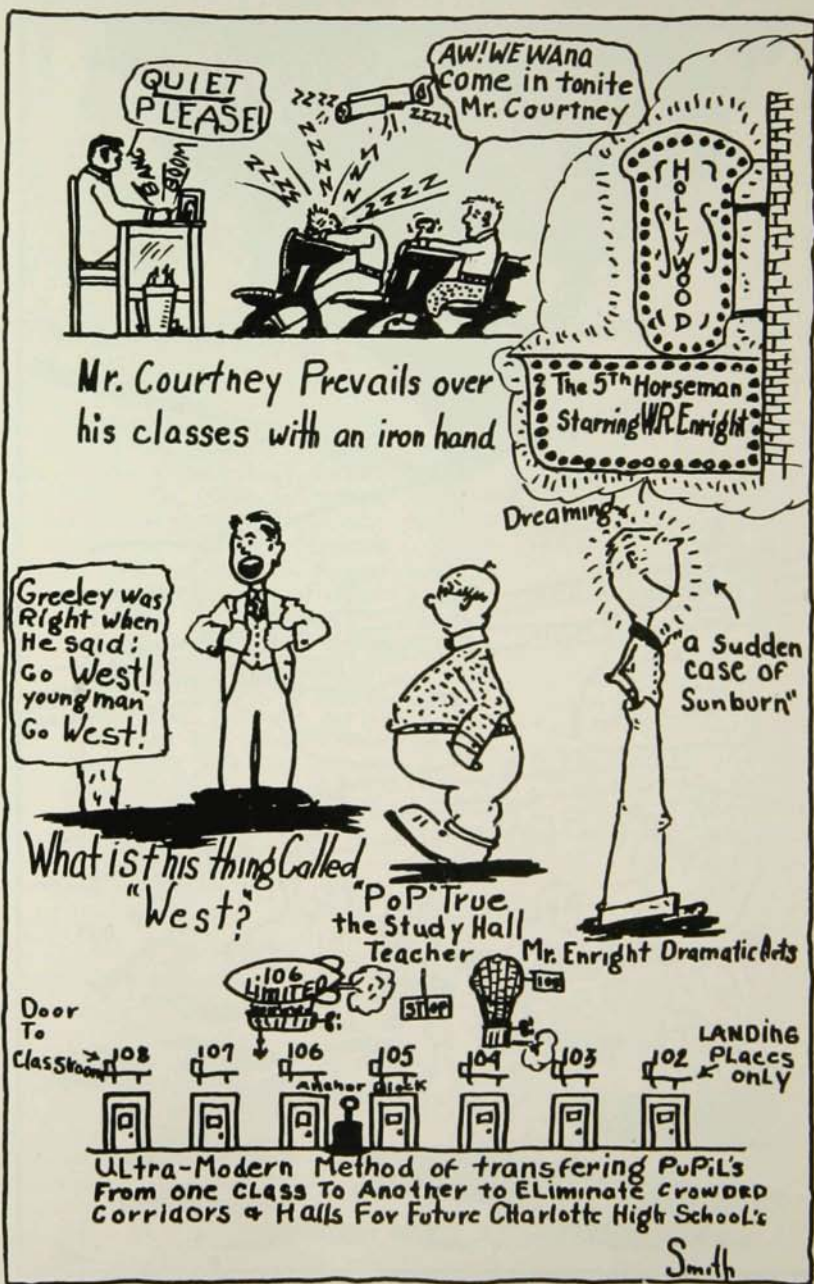 QUIET
PLEASE!
BANG
MOOB
ZZZZ
ZZZZ
ZZZZ
ZZZZ
ZZZZ
AW! WE WANA
come in tonite
Mr. Courtney
HOLLYWOOD
The 5Th Horseman
Starring W.R. Enright
Mr. Courtney Prevails over
his classes with an iron hand
Dreaming
"a Sudden
case of
Sunburn"
Greeley was
Right when
He said:
Go West!
young man
Go West!
What is this thing Called
"West?"
"PoP" True
the Study Hall
Teacher
Mr. Enright Dramatic Arts
106
LiMiTED
STOP
Door
To
Classroom
108
107
106
105
104
103
102
LANDiNG
PLACES
ONLY
Anchor Block
ULtra-Modern Method of transfering PuPiL's
From one CLass To Another to ELiminate CroWDRD
Corridors & Halls For Future CHarlotte High SchooL's
Smith